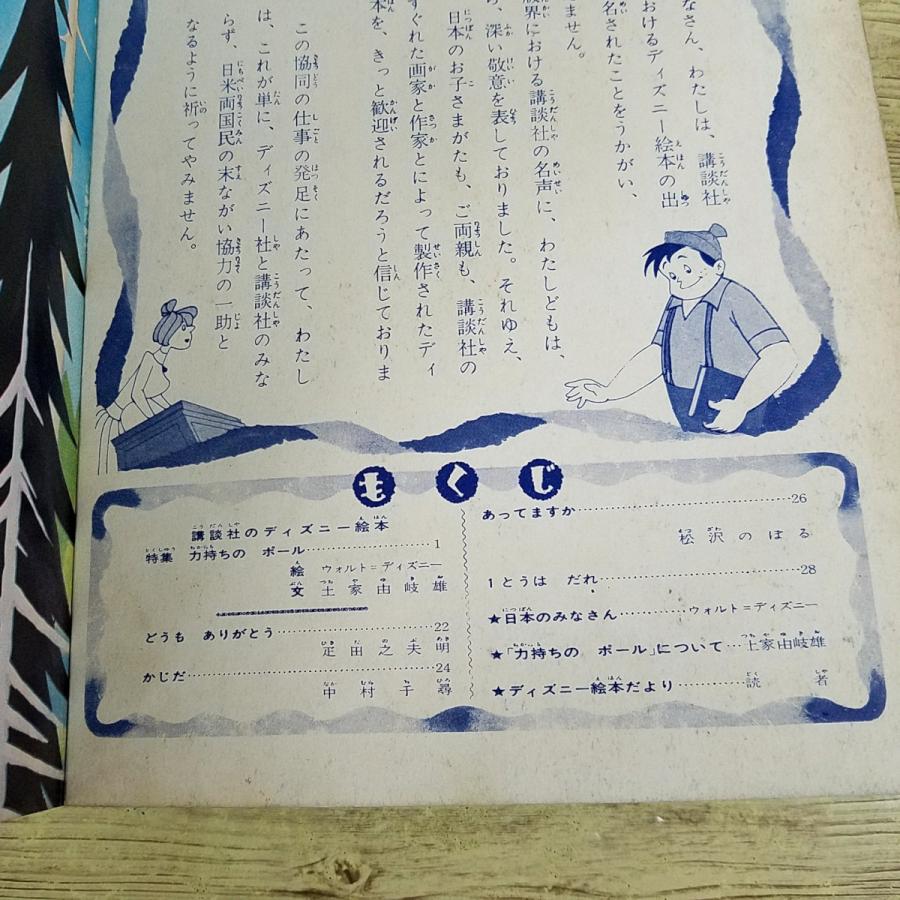 なさん、わたしは、講談社
おけるディズニー絵本の出
名されたことをうかがい、
ません。
界における講談社の名声に、わたしどもは、
、深い敬意を表しておりました。それゆえ、
日本のお子さまがたも、ご両親も、講談社の
すぐれた画家と作家とによって製作されたディ
本を、きっと歓迎されるだろうと信じておりま
この協同の仕事の発足にあたって、わたし
は、これが単に、ディズニー社と講談社のみな
らず、日米両国民の末ながい協力の一助と
なるように祈ってやみません。
もくじ
講談社のディズニー絵本
特集 力持ちの ポール……1
絵 ウォルト=ディズニー
文 土家由岐雄
どうも ありがとう……22
疋田之夫明
かじだ……24
中村千尋
あってますか……26
松沢のぼる
1とうは だれ……28
★日本のみなさん……ウォルト=ディズニー
★「力持ちの ポール」について…土家由岐雄
★ディズニー絵本だより……読者